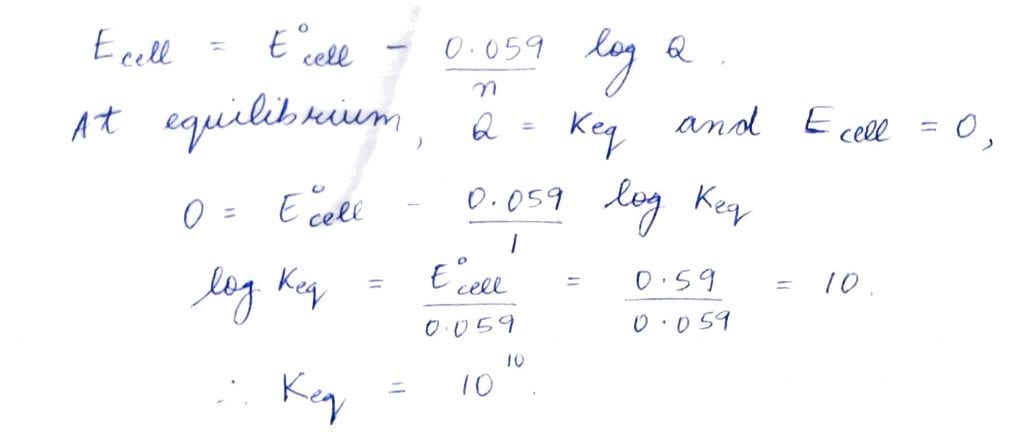 E cell = E° cell - 0.059/n log Q.
At equilibrium, Q = Keq and E cell = 0,
0 = E° cell - 0.059/1 log Keq
log Keq = E° cell/0.059 = 0.59/0.059 = 10.
∴ Keq = 10^10.